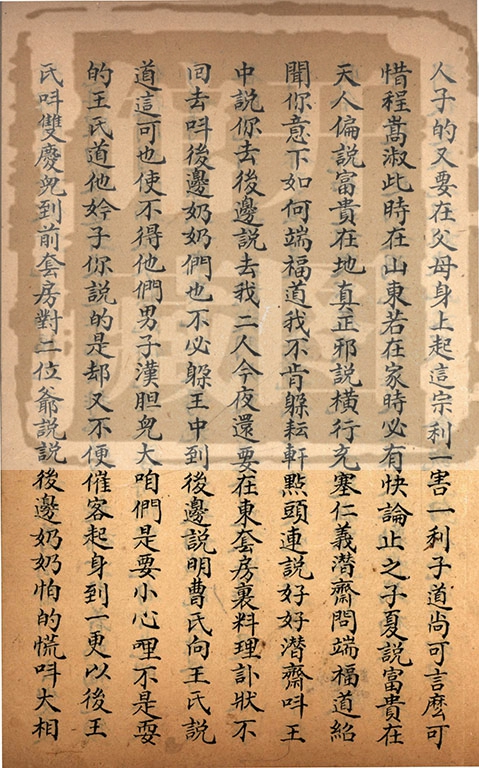 人子的又要在父母身上起這宗利一害一利子道尚可言麽可
惜程嵩淑此時在山東若在家時必有快論止之子夏說富貴在
天人偏說富貴在地真正邪說橫行充塞仁義潛齋問端福道紹
聞你意下如何端福道我不肯躲耘軒點頭連說好好潛齋呌王
中說你去後邊說去我二人今夜還要在東套房裏料理訃狀不
囘去呌後邊奶奶們也不必躲王中到後邊說明曹氏向王氏說
道這可也使不得他們男子漢胆兒大咱們是要小心哩不是耍
的王氏道他妗子你說的是却又不便催客起身到一更以後王
氏呌雙慶兒到前套房對二位爺說說後邊奶奶怕的慌呌大相